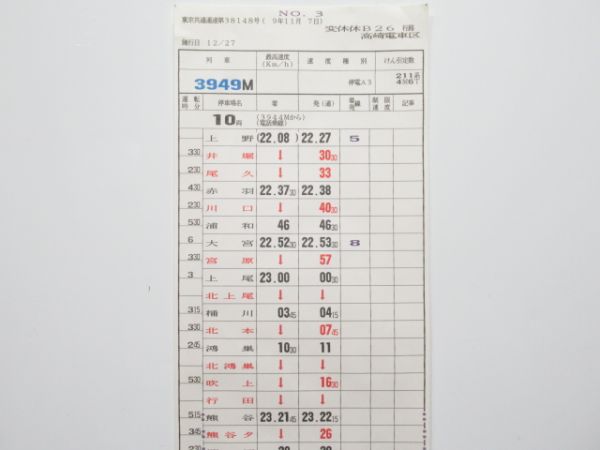 NO. 3
東京共通運達第38148号( 9年11月 7日)
変休休B26 欄
高崎電車区
施行日 12/27
列 車 最高速度(Km/h) 速 度 種 別 けん引定数
3949M 停電A3 211系
運転時分 停車場名 着 発(通) 着発線 制限速度 記事
10両 (3944Mから) (電話乗継)
上 野 (22.08 ) 22.27 5
330 井 堀 ↓ 30 30
230 尾 久 ↓ 33
430 赤 羽 22.37 30 22.38
230 川 口 ↓ 40 30
530 浦 和 46 46 30
6 大 宮 22.52 30 22.53 30 8
330 宮 原 ↓ 57
3 上 尾 23.00 00 30
北 上 尾 ↓ ↓
315 桶 川 03 45 04 15
330 北 本 ↓ 07 45
245 鴻 巣 10 30 11
北 鴻 巣 ↓ ↓
530 吹 上 ↓ 16 30
行 田 ↓ ↓
515 熊 谷 23.21 45 23.22 15
345 熊 谷 タ ↓ 26